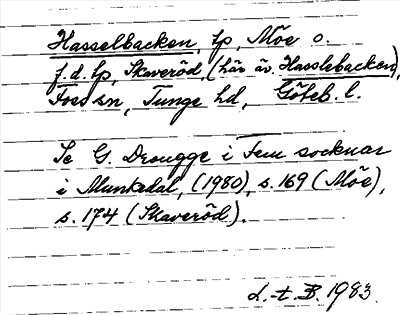 Hasselbacken, lp, Möe o.
f.d. lp, Skaveröd (här äv. Hasslebacken),
Foss sn, Tunge hd, Göteb. l.
Se G. Drougge i Fem socknar
i Munkedal, (1980), s. 169 (Möe),
s. 174 (Skaveröd).
d.-t. B. 1983